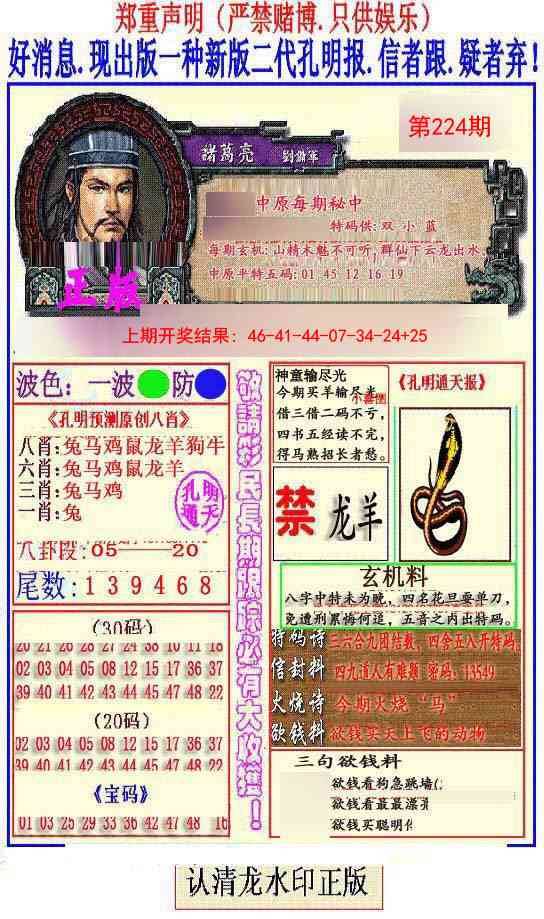 郑重声明（严禁赌博.只供娱乐）
好消息.现出版一种新版二代孔明报.信者跟.疑者弃！
第224期
諸葛亮
中原每期秘中
特码供：双 小 蓝
每期玄机：山精木魅不可听，群仙下云龙出水
中原平特五码：01 45 12 16 19
正版
上期开奖结果：46-41-44-07-34-24+25
波色：一波 防
《孔明预测原创八肖》
八肖：兔马鸡鼠龙羊狗牛
六肖：兔马鸡鼠龙羊
三肖：兔马鸡
一肖：兔
孔明
通天
八卦段：05——20
尾数：1 3 9 4 6 8
(30码)
20 21 26 28 27 34 38 10 11 18
02 03 04 05 08 12 15 17 36 37
39 40 41 42 43 44 45 47 48 22
(20码)
02 03 04 05 08 12 15 17 36 37
39 40 41 42 43 44 45 47 48 22
《宝码》
01 03 25 29 33 36 42 47 48 16
敬請彩民長期跟踪必有大收獲！
神童输尽光
今期买羊输尽光
借三借二码不亏，
四书五经读不完，
得马熟招长者愁。
《孔明通天报》
禁 龙羊
玄机料
八字中特未为晚，四名花旦耍单刀，
免遭刑累悔何迟，五音之内出特码。
特码诗 二六合九团结数，四舍五八开特码
信封料 四九道人有难题 密码：13549
火烧诗 今期火烧“马”
欲钱料 欲钱买天上飞的动物
三句欲钱料
欲钱看狗急跳墙(
欲钱看最最潇
欲钱买聪明
认清龙水印正版